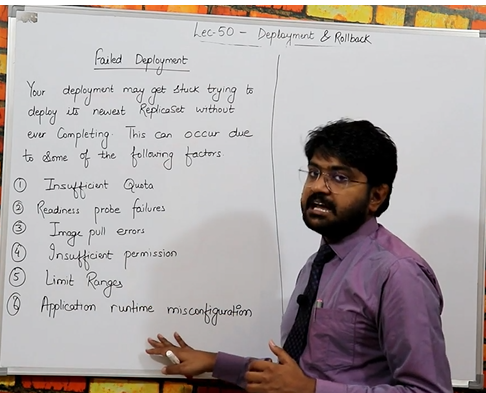 Lec-50 - Deployment & Rollback
Failed Deployment
Your deployment may get stuck trying to
deploy its newest ReplicaSet without
ever Completing. This can occur due
to some of the following factors
① Insufficient Quota
② Readiness probe failures
③ Image pull errors
④ Insufficient permission
⑤ Limit Ranges
⑥ Application runtime misconfiguration